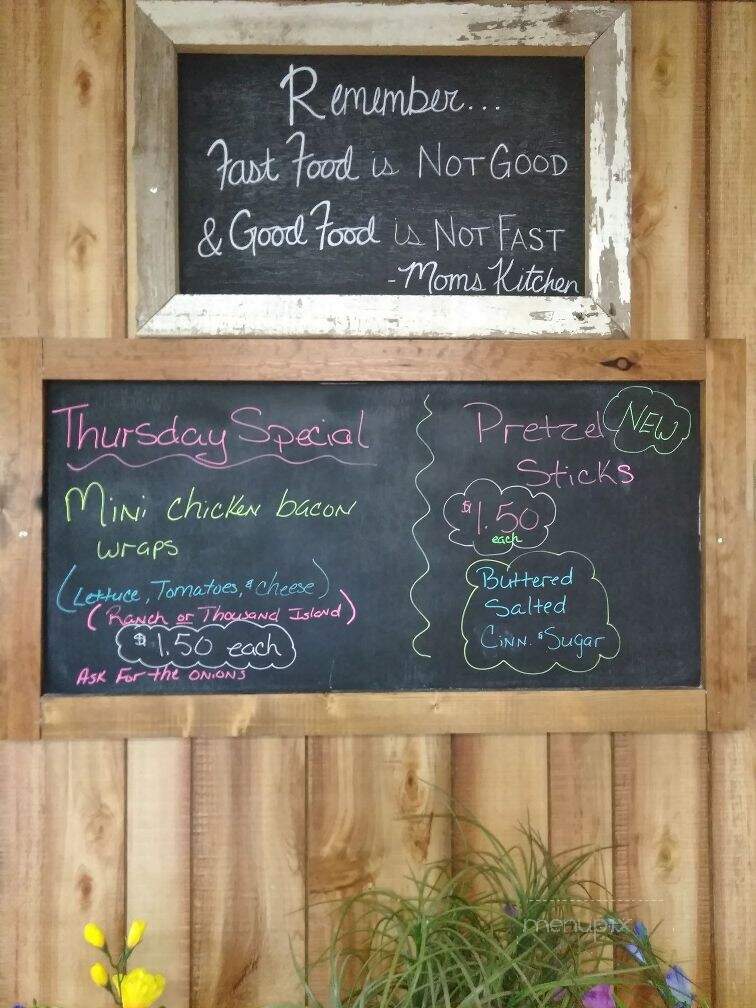 Remember...
Fast Food is NOT GOOD
& Good Food is NOT FAST
-Moms Kitchen
Thursday Special
Mini chicken bacon
wraps
(Lettuce, Tomatoes, & cheese)
(Ranch or Thousand Island)
$1.50 each
Ask For the onions
Pretzel NEW
Sticks
$1.50
each
Buttered
Salted
Cinn. & Sugar
menupix